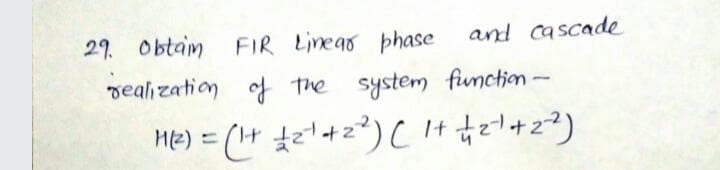 29. Obtain FIR Linear phase and cascade
realization of the system function -
H(z) = (1+ 1/2 z⁻¹ + z⁻²) ( 1+ 1/4 z⁻¹ + z⁻²)